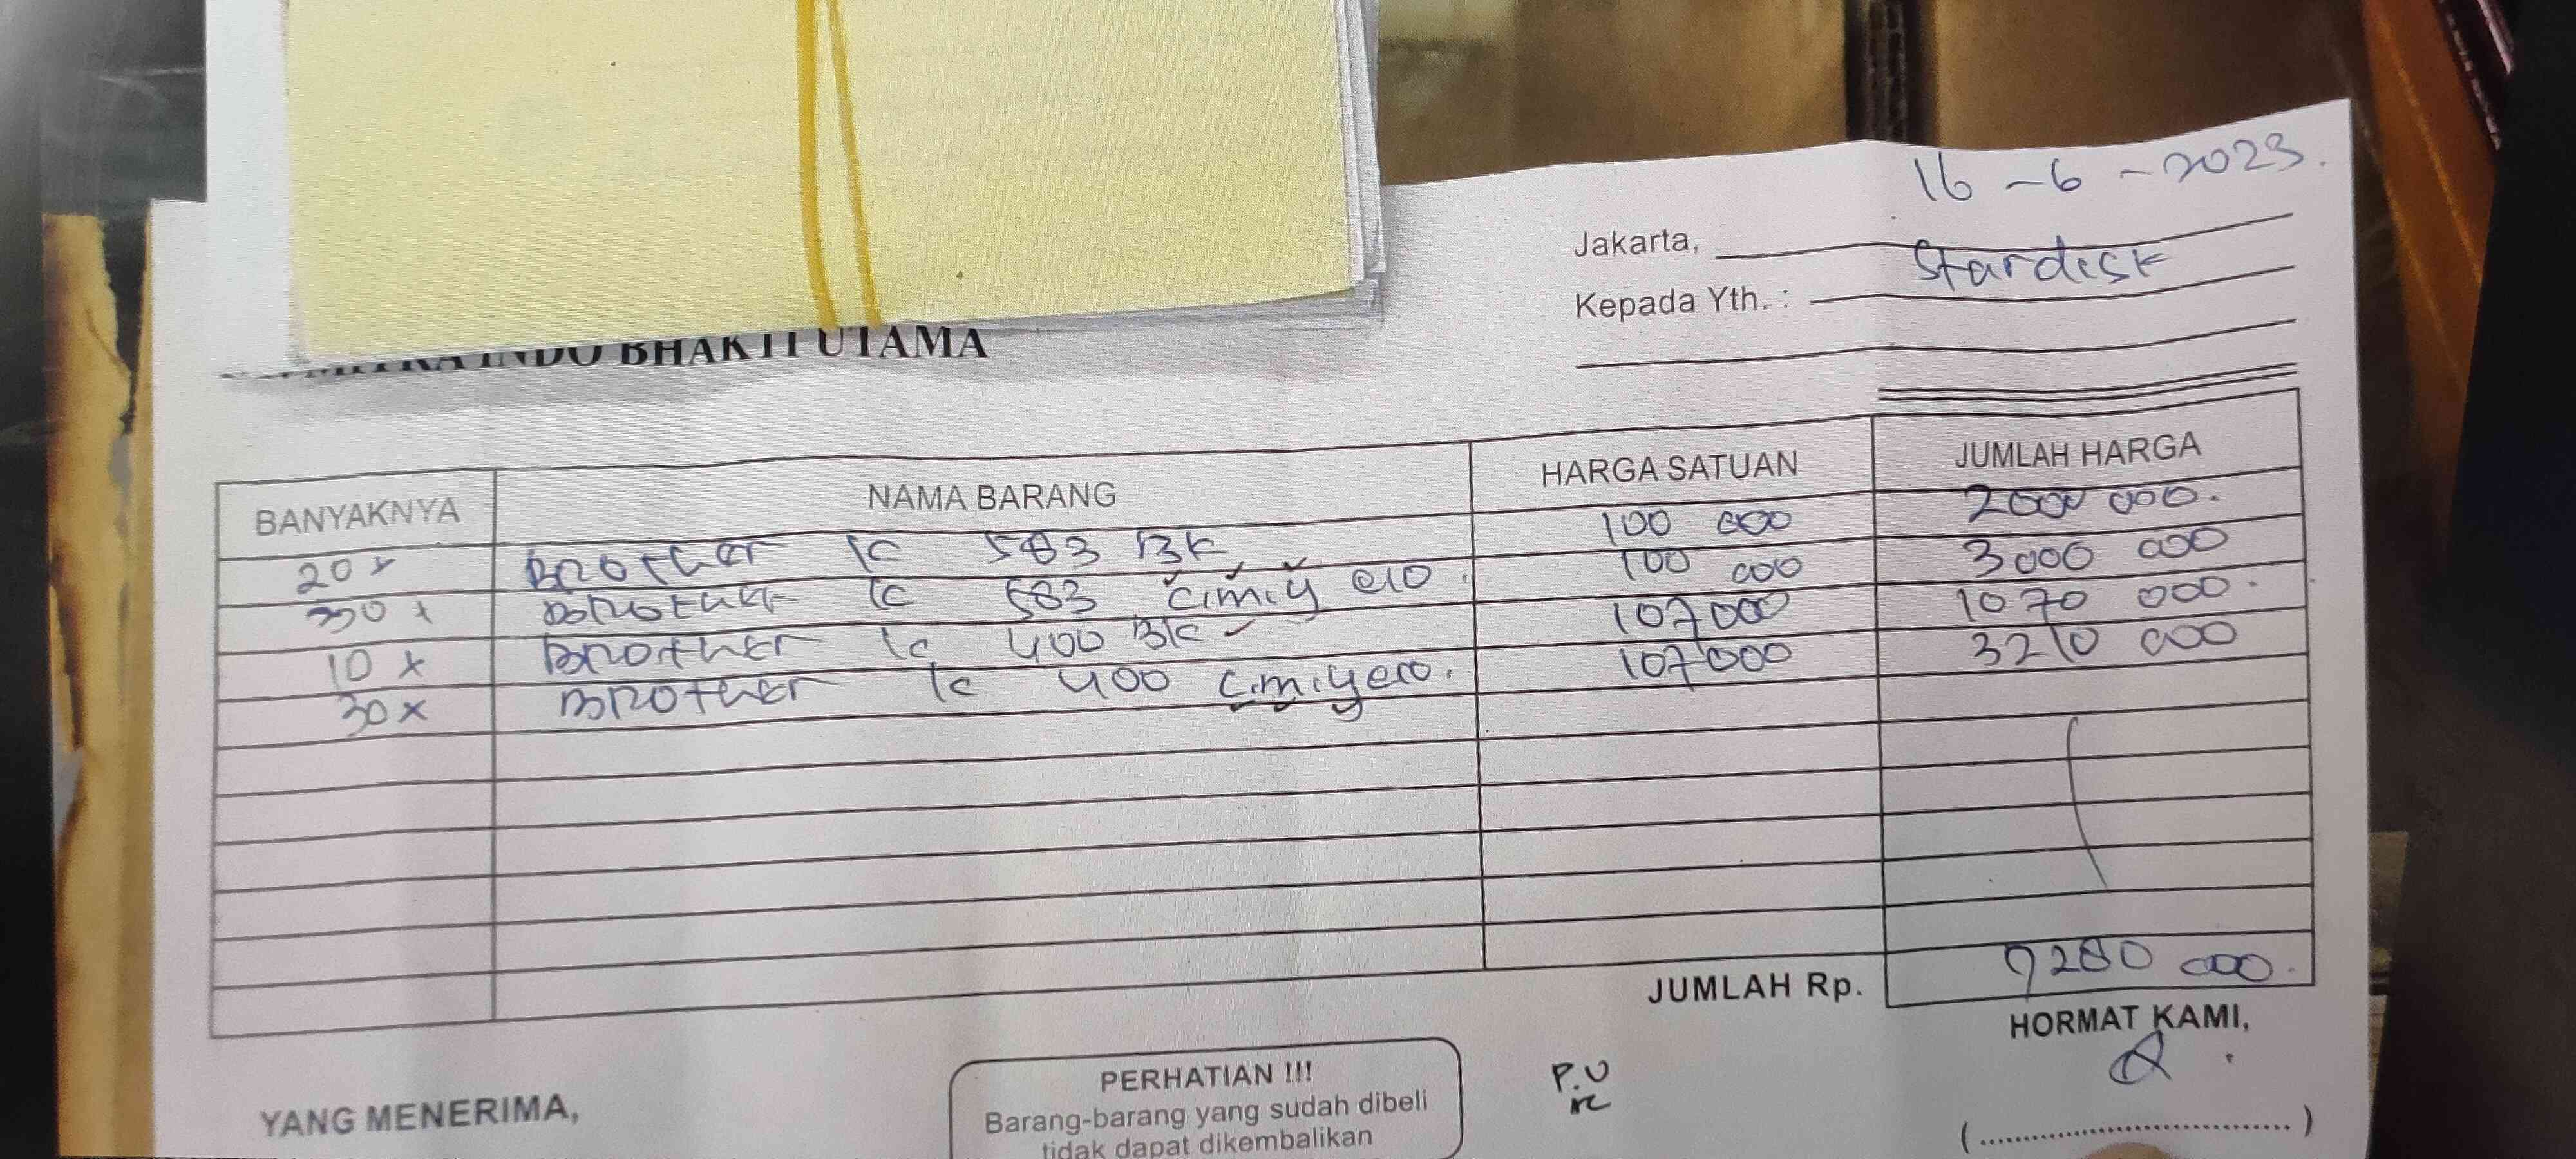 16 - 6 - 2023.
Jakarta,
Stardisk
Kepada Yth. :
INDO BHAKTI UTAMA
BANYAKNYA NAMA BARANG HARGA SATUAN JUMLAH HARGA
20 x Brother lc 583 BK 100 000 2000 000.
30 x Brother lc 583 c.m.y @10. 100 000 3000 000
10 x Brother lc 400 BK 107000 1070 000.
30 x Brother lc 400 c.m.y @10. 107000 3210 000
JUMLAH Rp. 9280 000.
HORMAT KAMI,
PERHATIAN !!!
Barang-barang yang sudah dibeli
tidak dapat dikembalikan
P.U
YANG MENERIMA,
(................................)